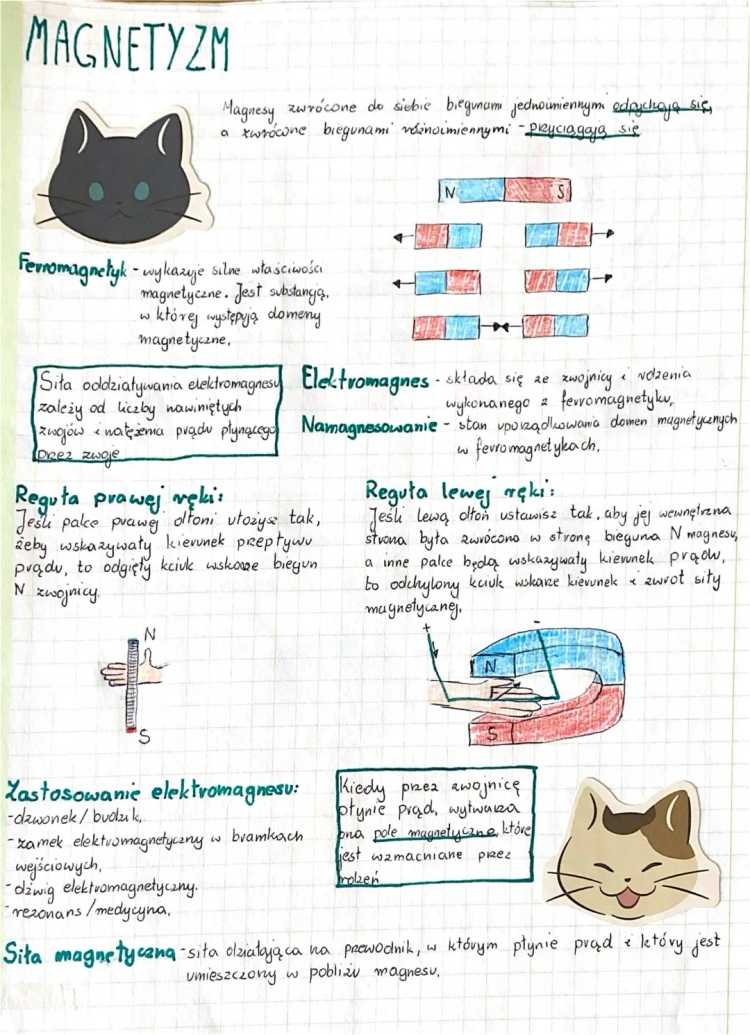 MAGNETYZM
Magnesy zwrócone do siebie biegunami jednoimiennymi odpychają się,
a zwrócone biegunami różnoimiennymi - przyciągają się
N S
Ferromagnetyk - wykazuje silne właściwości
magnetyczne. Jest substancją,
w której występują domeny
magnetyczne.
Siła oddziaływania elektromagnesu
zależy od liczby nawiniętych
zwojów i natężenia prądu płynącego
przez zwoje
Elektromagnes - składa się ze zwojnicy i rdzenia
wykonanego z ferromagnetyku.
Namagnesowanie - stan uporządkowania domen magnetycznych
w ferromagnetykach.
Reguła prawej ręki:
Jeśli palce prawej dłoni ułożysz tak,
żeby wskazywały kierunek przepływu
prądu, to odgięty kciuk wskaże biegun
N zwojnicy.
N
S
Reguła lewej ręki:
Jeśli lewą dłoń ustawisz tak, aby jej wewnętrzna
strona była zwrócona w stronę bieguna N magnesu,
a inne palce będą wskazywały kierunek prądu,
to odchylony kciuk wskaże kierunek i zwrot siły
magnetycznej.
+ -
N
F
S
Zastosowanie elektromagnesu:
- dzwonek / budzik,
- zamek elektromagnetyczny w bramkach
wejściowych,
- dźwig elektromagnetyczny.
- rezonans / medycyna.
Kiedy przez zwojnicę
płynie prąd, wytwarza
ona pole magnetyczne, które
jest wzmacniane przez
rdzeń
Siła magnetyczna - siła działająca na przewodnik, w którym płynie prąd i który jest
umieszczony w pobliżu magnesu.